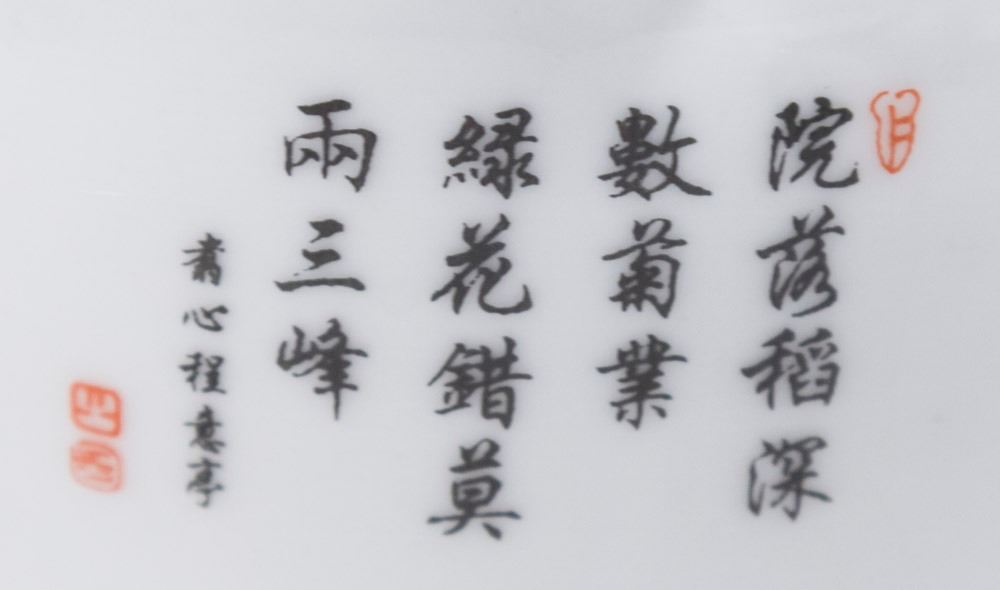 院落稻深
數菊業
緑花錯莫
兩三峰
翥心程意亭